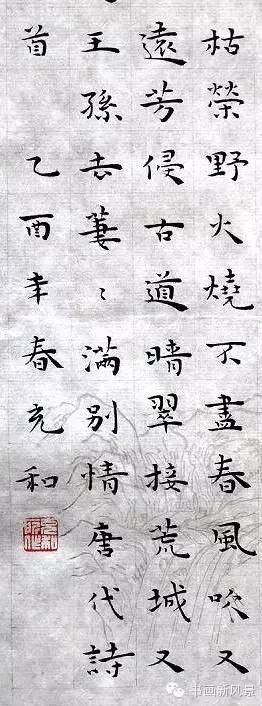 枯榮野火燒不盡春風吹又
遠芳侵古道晴翠接荒城又
王孫去萋〻滿別情唐代詩
首乙酉年春充和
书画新风景